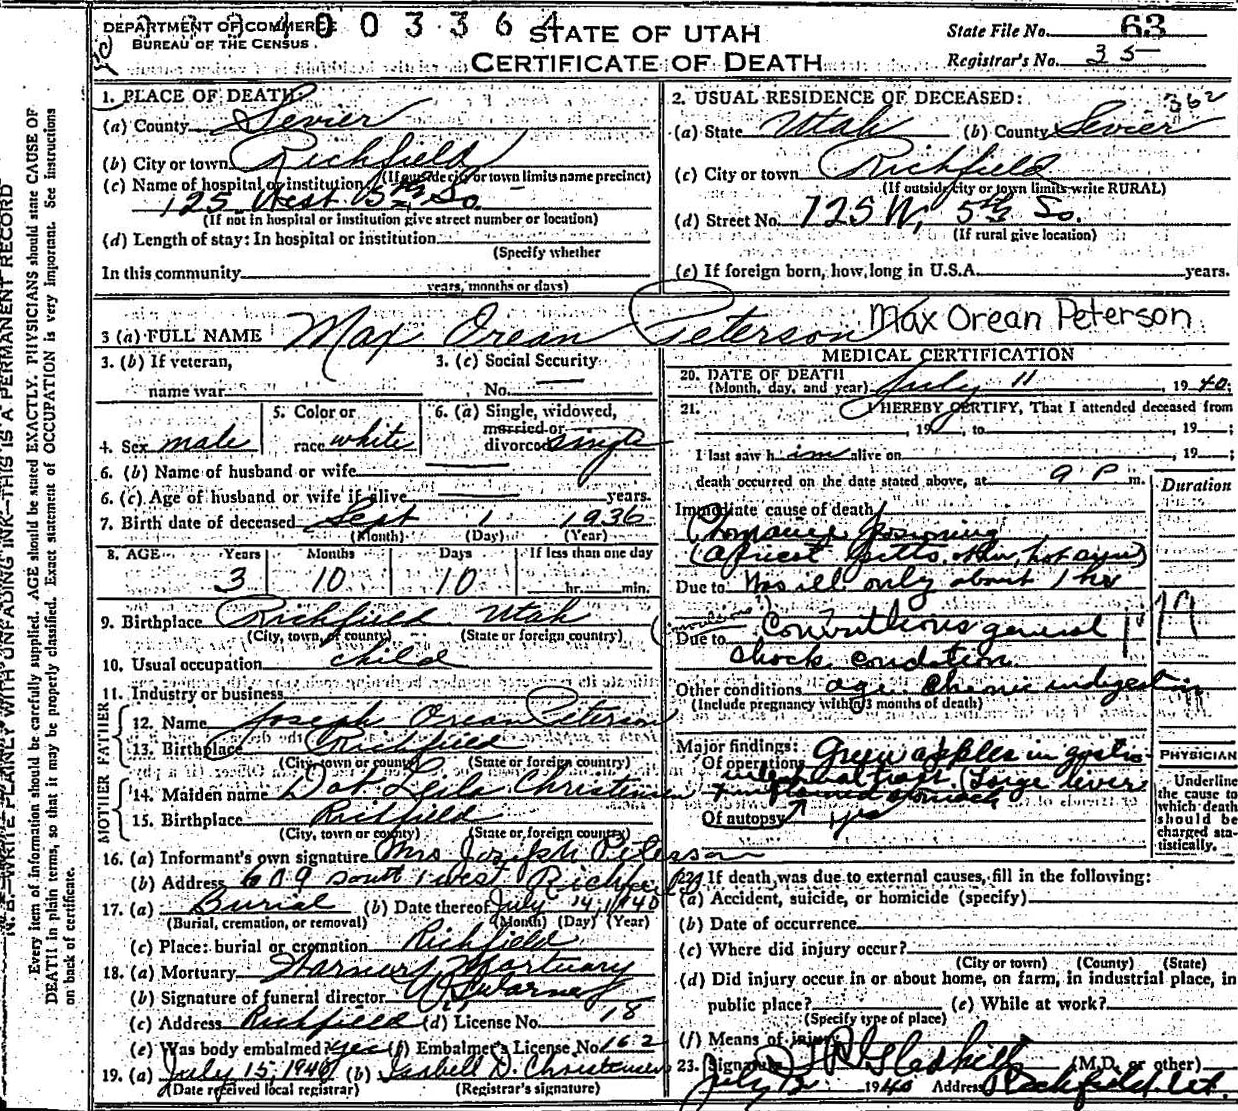 DEPARTMENT OF COMMERCE
BUREAU OF THE CENSUS
003364
STATE OF UTAH
CERTIFICATE OF DEATH
State File No. 63
Registrar's No. 35
N. B.—WRITE PLAINLY WITH UNFADING INK—THIS IS A PERMANENT RECORD
Every item of information should be carefully supplied. AGE should be stated EXACTLY. PHYSICIANS should state CAUSE OF
DEATH in plain terms, so that it may be properly classified. Exact statement of OCCUPATION is very important. See instructions
on back of certificate.
1. PLACE OF DEATH:
(a) County Sevier
(b) City or town Richfield
(If outside city or town limits name precinct)
(c) Name of hospital or institution:
125 West 5th So.
(If not in hospital or institution give street number or location)
(d) Length of stay: In hospital or institution
(Specify whether
In this community
years, months or days)
2. USUAL RESIDENCE OF DECEASED: 362
(a) State Utah (b) County Sevier
(c) City or town Richfield
(If outside city or town limits write RURAL)
(d) Street No. 125 W, 5th So.
(If rural give location)
(e) If foreign born, how long in U.S.A. years.
3 (a) FULL NAME Max Orean Peterson Max Orean Peterson
3. (b) If veteran,
name war
3. (c) Social Security
No. —
4. Sex male
5. Color or
race white
6. (a) Single, widowed,
married or
divorced single
6. (b) Name of husband or wife —
6. (c) Age of husband or wife if alive — years.
7. Birth date of deceased Sept 1 1936
(Month) (Day) (Year)
8. AGE Years Months Days If less than one day
3 10 10 hr. min.
9. Birthplace Richfield Utah
(City, town, or county) (State or foreign country)
10. Usual occupation child
11. Industry or business
FATHER
12. Name Joseph Orean Peterson
13. Birthplace Richfield
(City, town or county) (State or foreign country)
MOTHER
14. Maiden name Dot Leila Christensen
15. Birthplace Richfield
(City, town or county) (State or foreign country)
16. (a) Informant's own signature Mrs Joseph Peterson
(b) Address 609 south 1 west Richfield
17. (a) Burial (b) Date thereof July 14, 1940
(Burial, cremation, or removal) (Month) (Day) (Year)
(c) Place: burial or cremation Richfield
18. (a) Mortuary Mortuary
(b) Signature of funeral director
(c) Address Richfield (d) License No. 18
(e) Was body embalmed? yes (f) Embalmer's License No. 162
19. (a) July 15, 1940 (b) Isabell D. Christensen
(Date received local registrar) (Registrar's signature)
MEDICAL CERTIFICATION
20. DATE OF DEATH
(Month, day, and year) July 11, 1940;
21. I HEREBY CERTIFY, That I attended deceased from
, 19 , to , 19 ;
I last saw him alive on , 19 ;
death occurred on the date stated above, at 9 P m.
Duration
Immediate cause of death
Ptomaine Poisoning
(Apricot pitts
Due to Was ill only about 1 hr
Due to Convulthions general
shock condation
Other conditions age Chronic indigestion
(Include pregnancy within 3 months of death)
Major findings:
Of operation Green apples in gastro
intestinal tract (Large liver
stomach
Of autopsy yes
PHYSICIAN
Underline
the cause to
which death
should be
charged sta-
tistically.
22. If death was due to external causes, fill in the following:
(a) Accident, suicide, or homicide (specify)
(b) Date of occurrence
(c) Where did injury occur?
(City or town) (County) (State)
(d) Did injury occur in or about home, on farm, in industrial place, in
public place? (e) While at work?
(Specify type of place)
(f) Means of injury
23. Signature (M.D. or other)
July 12 1940 Address Richfield, Ut.